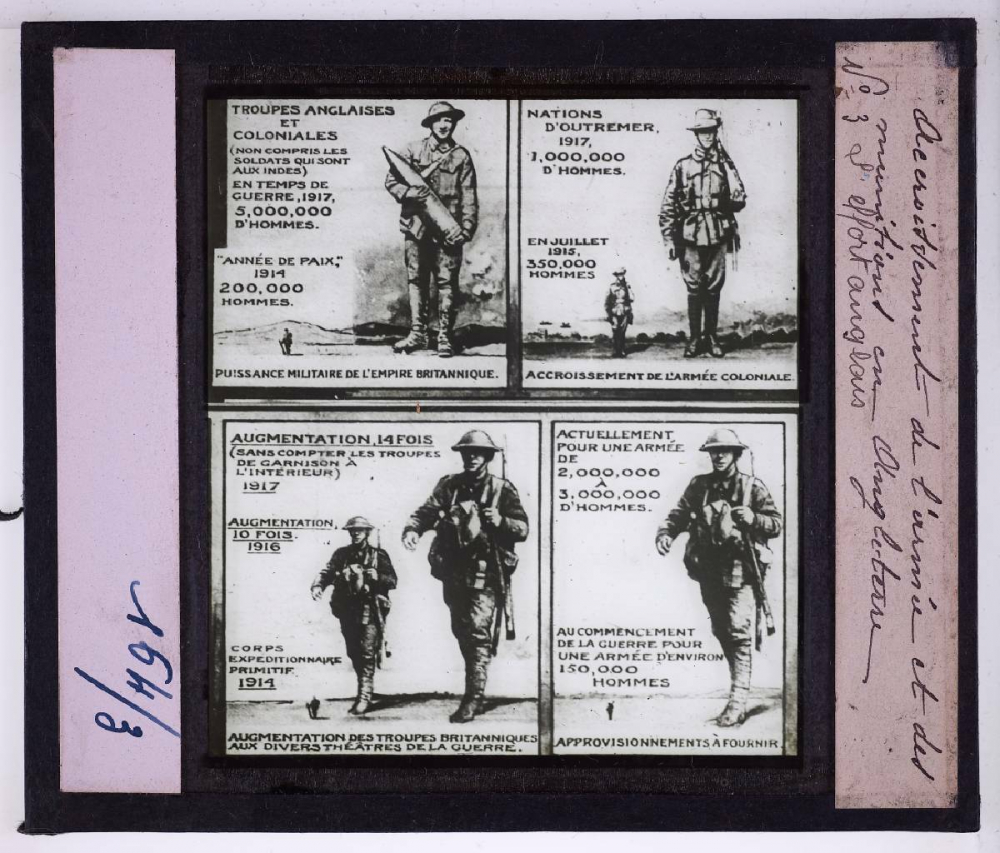 TROUPES ANGLAISES
ET
COLONIALES
(NON COMPRIS LES
SOLDATS QUI SONT
AUX INDES)
EN TEMPS DE
GUERRE, 1917,
5,000,000
D'HOMMES.
"ANNÉE DE PAIX,"
1914
200,000
HOMMES.
PUISSANCE MILITAIRE DE L'EMPIRE BRITANNIQUE.
NATIONS
D'OUTREMER,
1917,
1,000,000
D'HOMMES.
EN JUILLET
1915,
350,000
HOMMES
ACCROISSEMENT DE L'ARMÉE COLONIALE.
AUGMENTATION, 14 FOIS
(SANS COMPTER LES TROUPES
DE GARNISON À
L'INTÉRIEUR)
1917
AUGMENTATION,
10 FOIS.
1916
CORPS
EXPEDITIONNAIRE
PRIMITIF
1914
AUGMENTATION DES TROUPES BRITANNIQUES
AUX DIVERS THÉÂTRES DE LA GUERRE.
ACTUELLEMENT
POUR UNE ARMÉE
DE
2,000,000
À
3,000,000
D'HOMMES.
AU COMMENCEMENT
DE LA GUERRE POUR
UNE ARMÉE D'ENVIRON
150,000
HOMMES
APPROVISIONNEMENTS À FOURNIR.
de l'armée et des
munitions en Angleterre
No 3 L'effort anglais
1649/3